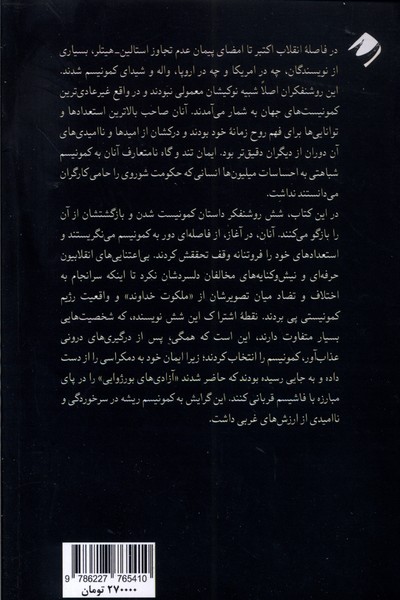 در فاصلۀ انقلاب اکتبر تا امضای پیمان عدم تجاوز استالین-هیتلر، بسیاری
از نویسندگان، چه در امریکا و چه در اروپا، واله و شیدای کمونیسم شدند.
این روشنفکران اصلاً شبیه نوکیشان معمولی نبودند و در واقع غیرعادی‌ترین
کمونیست‌های جهان به شمار می‌آمدند. آنان صاحب بالاترین استعدادها و
توانایی‌ها برای فهم روح زمانۀ خود بودند و درکشان از امیدها و ناامیدی‌های
آن دوران از دیگران دقیق‌تر بود. ایمان تند و گاه نامتعارف آنان به کمونیسم
شباهتی به احساسات میلیون‌ها انسانی که حکومت شوروی را حامی کارگران
می‌دانستند نداشت.
در این کتاب، شش روشنفکر داستان کمونیست شدن و بازگشتشان از آن
را بازگو می‌کنند. آنان، در آغاز، از فاصله‌ای دور به کمونیسم می‌نگریستند و
استعدادهای خود را فروتنانه وقف تحققش کردند. بی‌اعتنایی‌های انقلابیون
حرفه‌ای و نیش‌وکنایه‌های مخالفان دلسردشان نکرد تا اینکه سرانجام به
اختلاف و تضاد میان تصویرشان از «ملکوت خداوند» و واقعیت رژیم
کمونیستی پی بردند. نقطۀ اشتراک این شش نویسنده، که شخصیت‌هایی
بسیار متفاوت دارند، این است که همگی؛ پس از درگیری‌های درونی
عذاب‌آور، کمونیسم را انتخاب کردند؛ زیرا ایمان خود به دمکراسی را از دست
داده و به جایی رسیده بودند که حاضر شدند «آزادی‌های بورژوایی» را در پای
مبارزه با فاشیسم قربانی کنند. این گرایش به کمونیسم ریشه در سرخوردگی و
ناامیدی از ارزش‌های غربی داشت.
9 786227 765410
۲۷۰۰۰۰ تومان